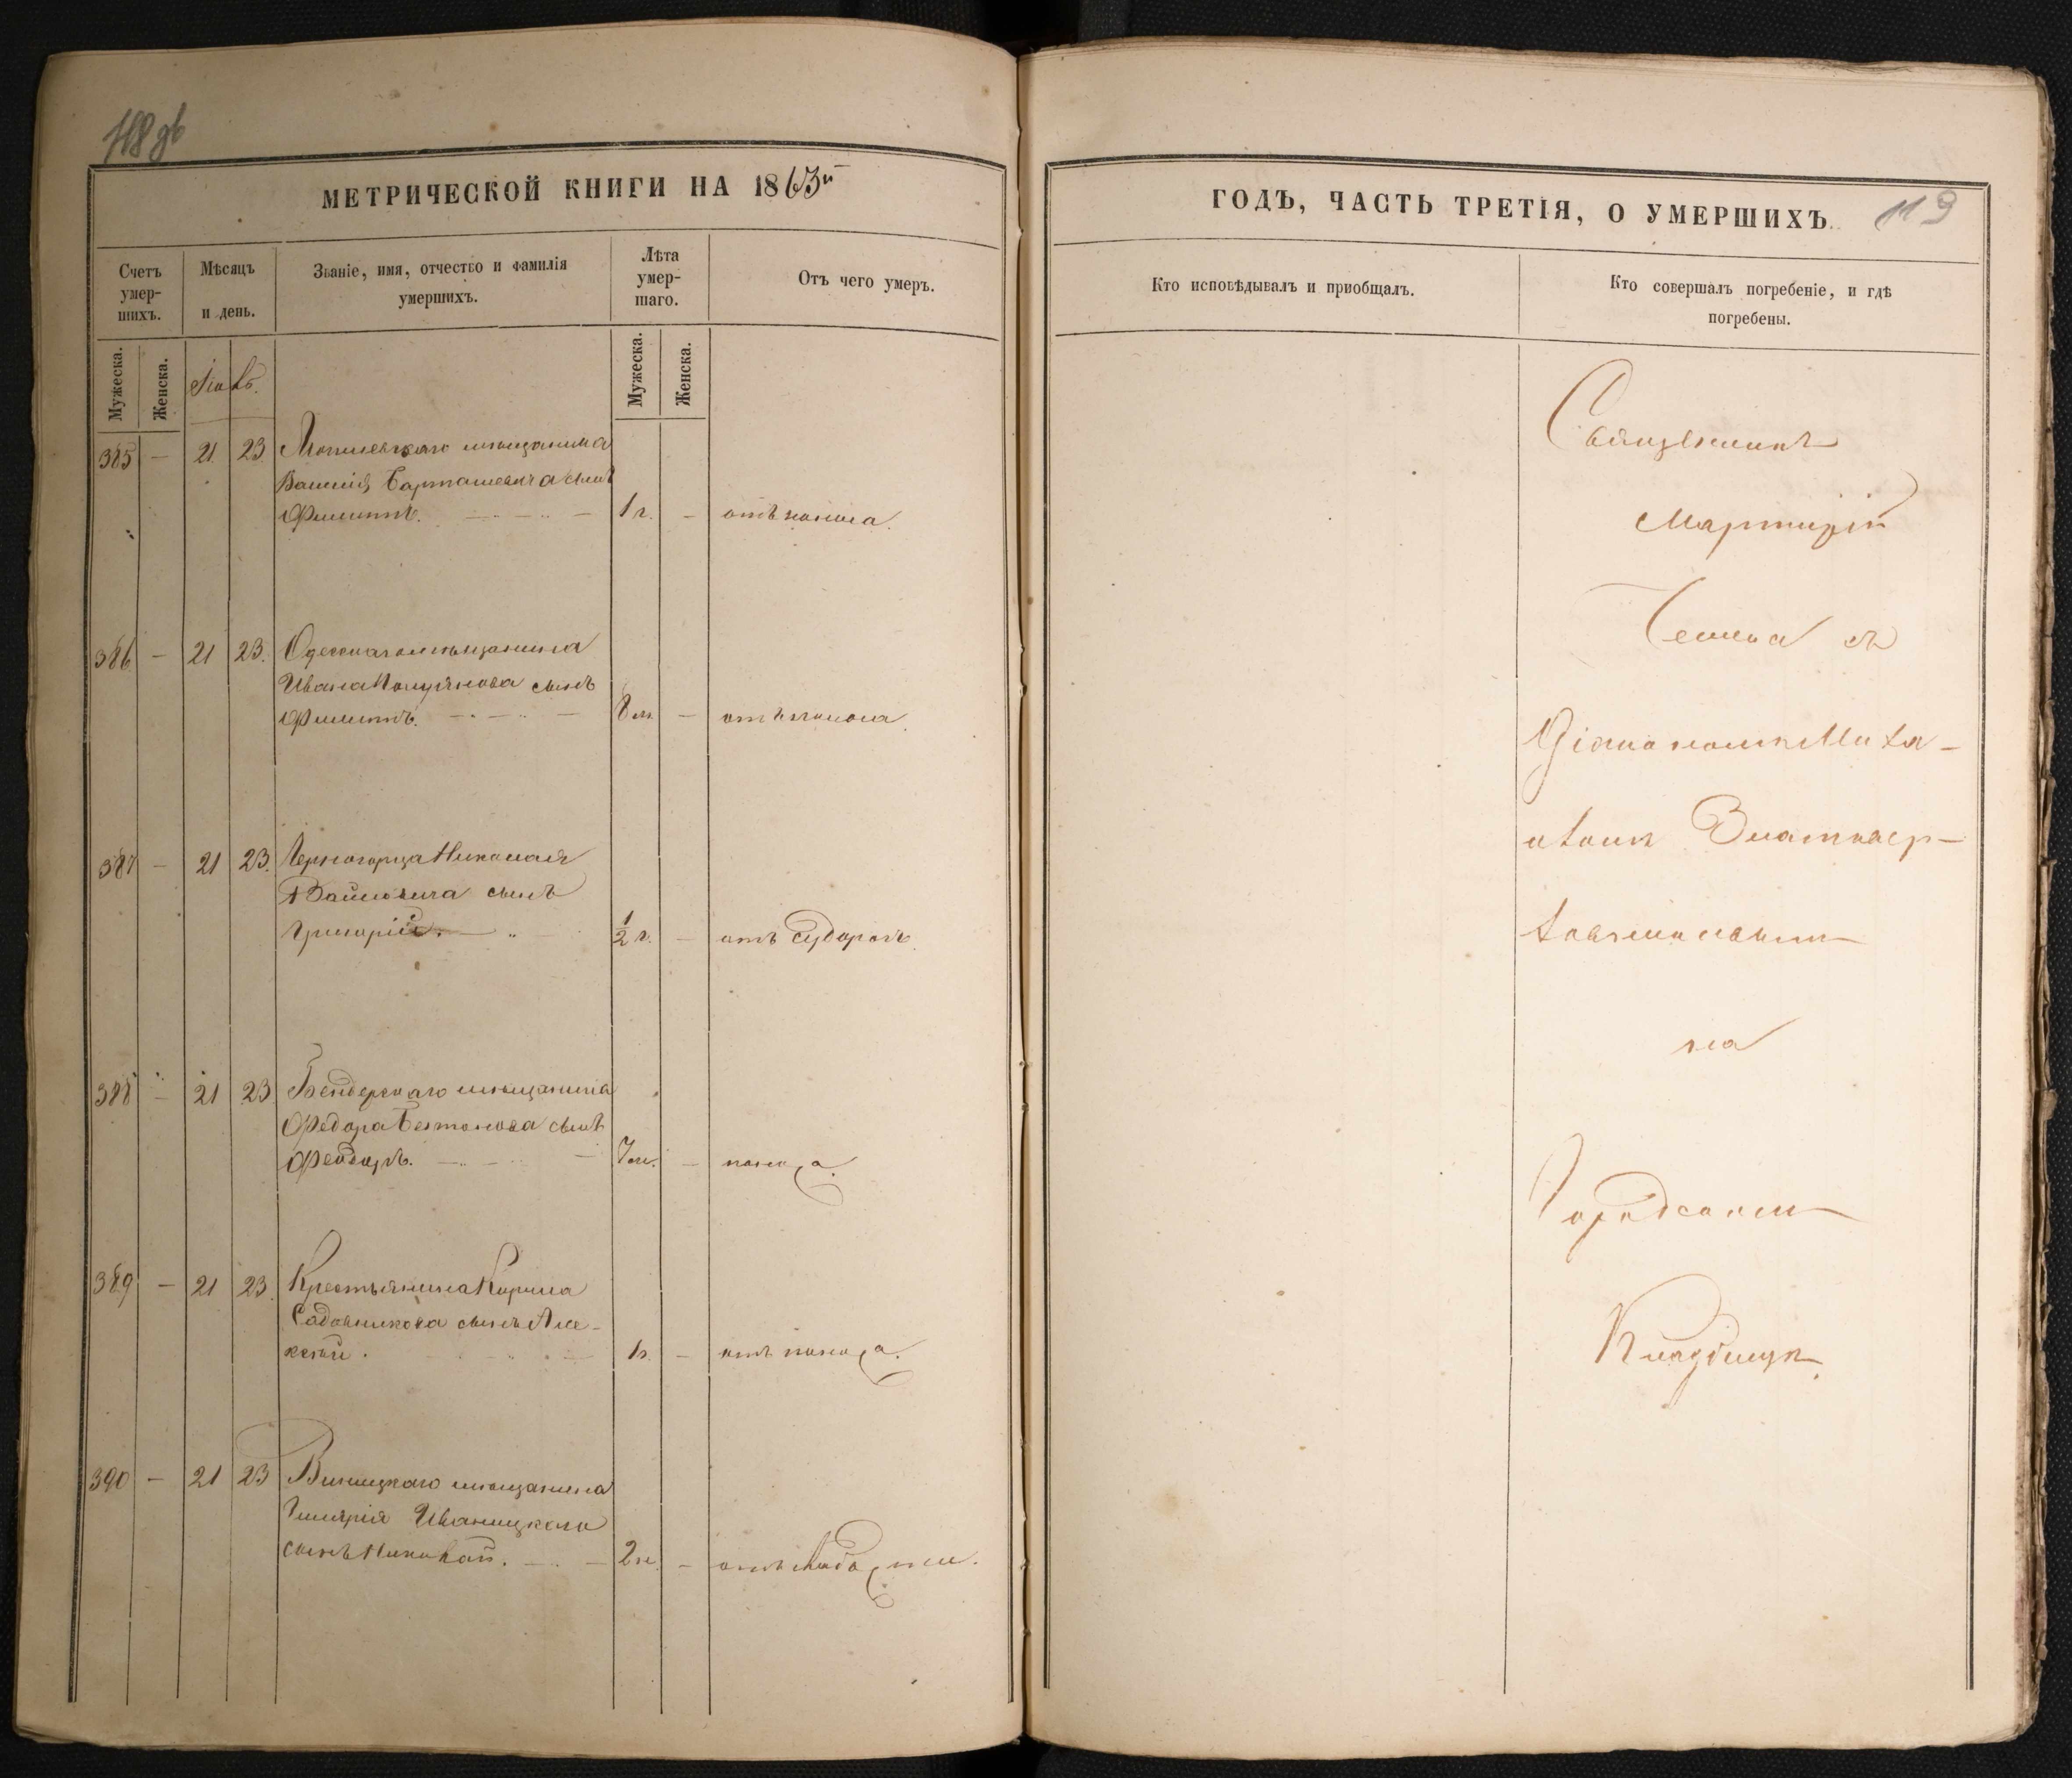 118 об
МЕТРИЧЕСКОЙ КНИГИ НА 1863й
Счетъ умер-шихъ.
Мѣсяцъ и день.
Званіе, имя, отчество и фамилія умершихъ.
Лѣта умер-шаго.
Отъ чего умеръ.
Мужеска.
Женска.
Мужеска.
Женска.
385 — 21. 23. мѣщанина
Василія Барташевича сынъ
Филиппъ. 1 г. — отъ поноса.
386 — 21 23. Одесскаго мѣщанина
Ивана сынъ
Филиппъ. 8 м. — отъ поноса.
387 — 21 23. Черногорца Николая
Войновича сынъ
Григорій. ½ г. — отъ судорогъ.
388 — 21 23 Бендерскаго мѣщанина
Федора сынъ
Феодоръ. 7 м. — поноса.
389 — 21 23. Крестьянина Кирила
Садовникова сынъ Але-
ксѣй. 1 г. — отъ поноса.
390 — 21 23 Виницкаго мѣщанина
Иваницкаго
сынъ Николай. 2 н. — отъ слабости.
ГОДЪ, ЧАСТЬ ТРЕТІЯ, О УМЕРШИХЪ.
119
Кто исповѣдывалъ и приобщалъ.
Кто совершалъ погребеніе, и гдѣ погребены.
Священникъ
Мартирій
Чемена съ
Діакономъ Миха-
иломъ Златовер-
ховниковымъ
на
Городскомъ
Кладбищѣ.